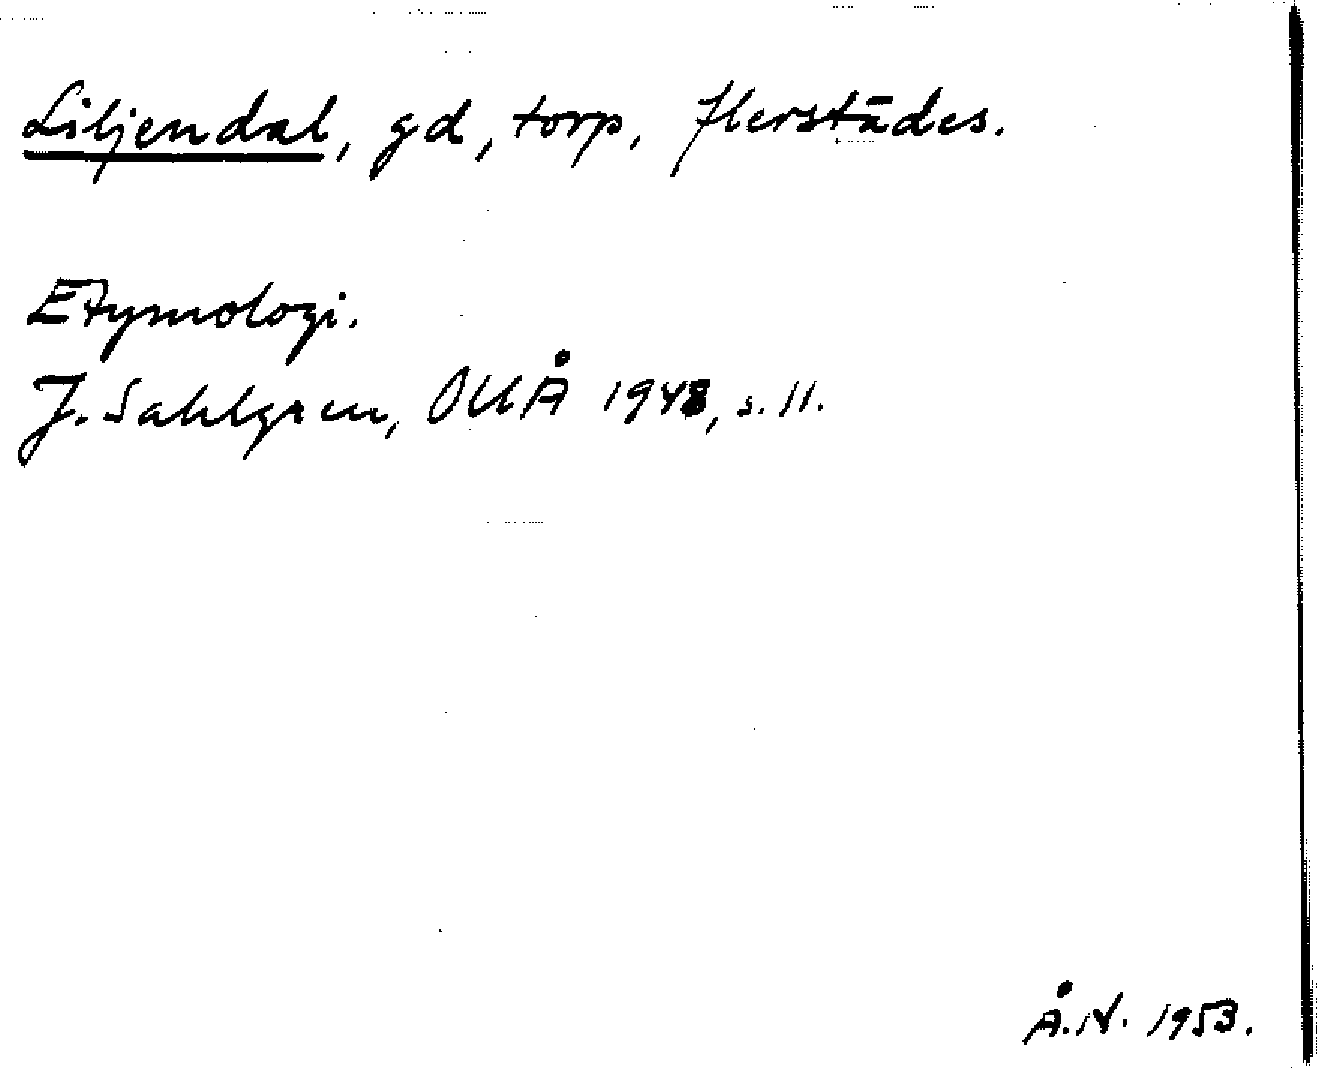 Liljendal, gd, torp, flerstädes.
Etymologi.
J. Sahlgren, OUÅ 1948, s. 11.
Å.N. 1953.